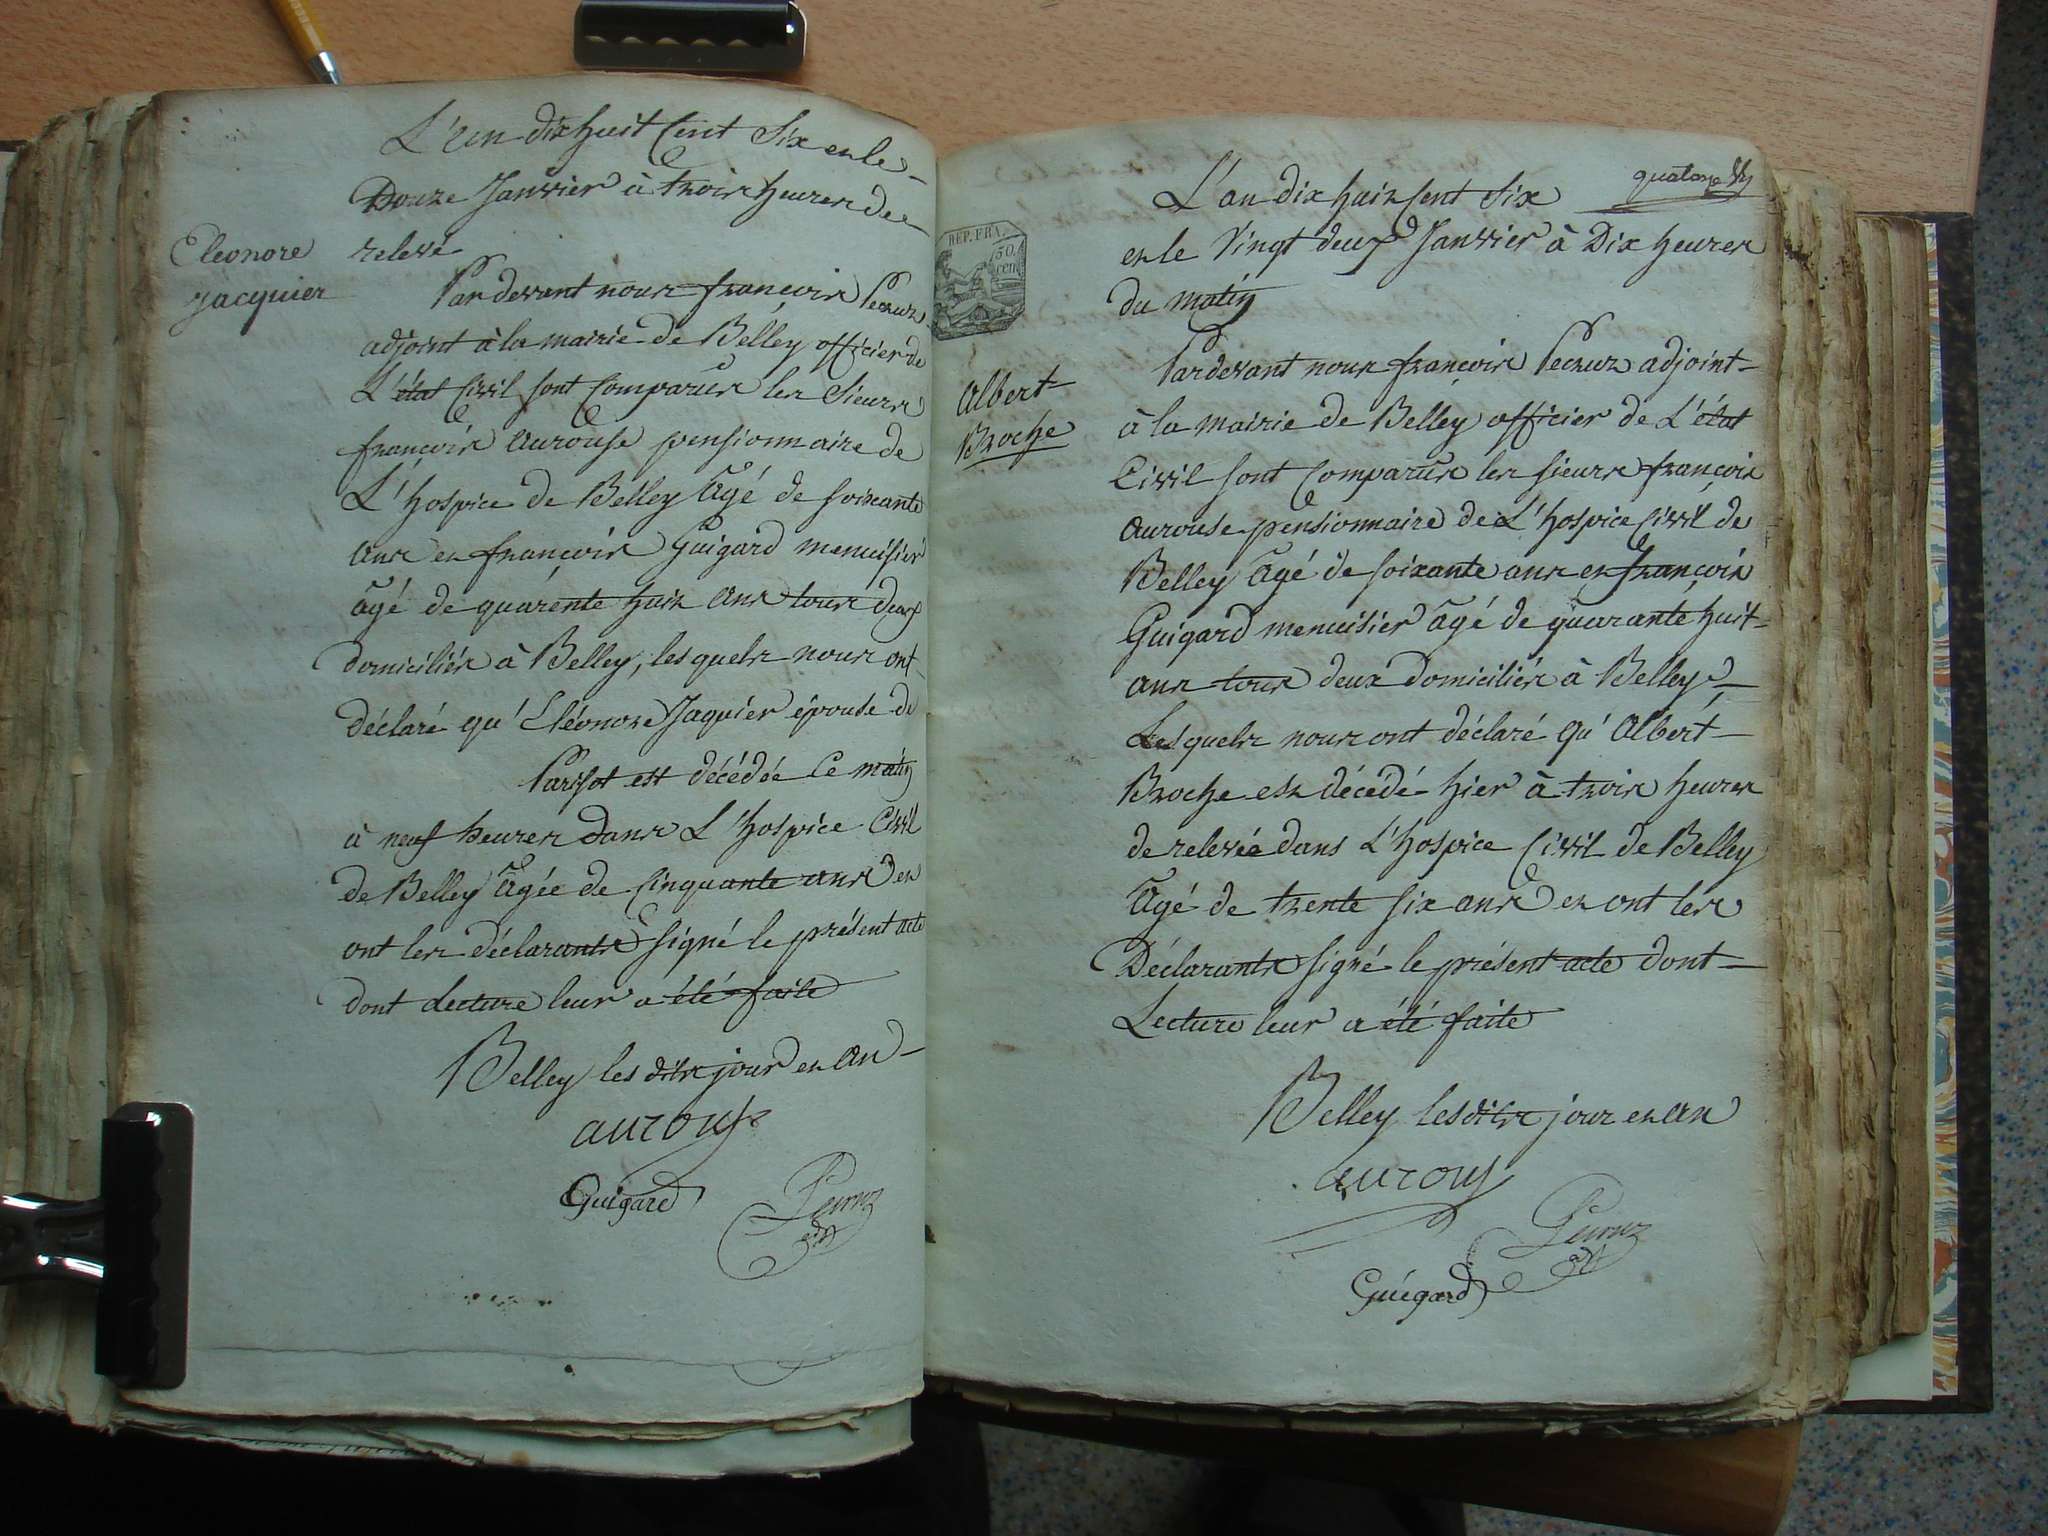 L'an dix huit Cent Six et le
Douze Janvier à trois heures de
relevé
Eleonore
Jacquier
Pardevant nous françois Pecruz
adjoint à la mairie de Belley officier de
L'état Civil sont Comparus les Sieurs
françois aurouse pensionnaire de
L'hospice de Belley âgé de soixante
ans et françois Guigard menuisier
âgé de quarente huit ans tous deux
domiciliés à Belley, lesquels nous ont
déclaré qu'Eléonore Jaquier épouse de
Parisot est décédée Ce matin
à neuf heures dans L'hospice Civil
de Belley âgée de Cinquante ans et
ont les déclarants signé le présent acte
dont Lecture leur a été faite
Belley les dits jour et an
aurous
Guigard
quatorze
L'an dix huit Cent Six
et le Vingt deux Janvier à Dix heures
du matin
REP. FRA.
50.
cen
Albert
Broche
Pardevant nous françois Pecruz adjoint
à la mairie de Belley officier de L'état
Civil sont Comparus les sieurs françois
aurouse pensionnaire de L'hospice Civil de
Belley âgé de soixante ans et françois
Guigard menuisier âgé de quarante huit
ans tous deux domiciliés à Belley
Lesquels nous ont déclaré qu'Albert
Broche est décédé hier à trois heures
de relevée dans L'hospice Civil de Belley
âgé de trente six ans et ont les
Déclarants signé le présent acte dont
Lecture leur a été faite
Belley les dits jour et an
aurous
Guigard